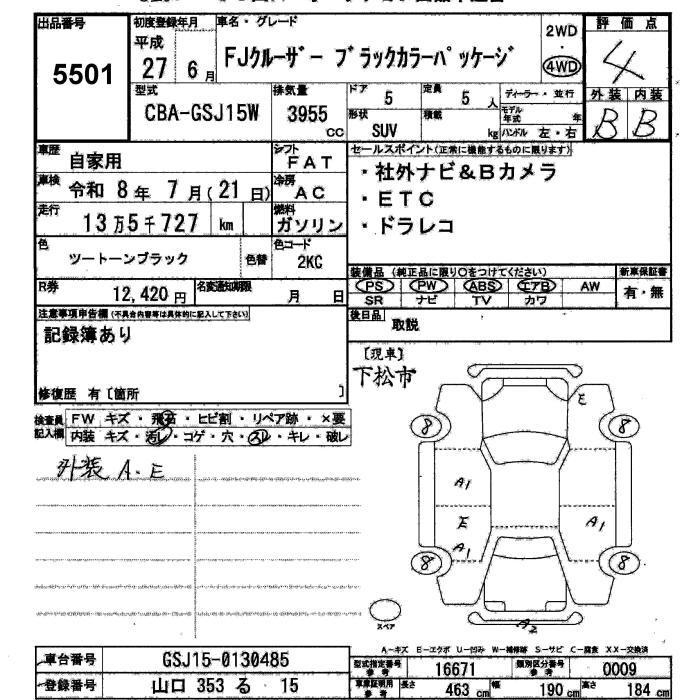 出品番号
5501
初度登録年月
平成
27 6月
車名・グレード
FJクルーザー ブラックカラーパッケージ
2WD
・
4WD
評価点
4
外装 内装
B B
型式
CBA-GSJ15W
排気量
3955
CC
ドア
5
定員
5人
ディーラー・並行
モデル年式 年
形状
SUV
積載
kg
ハンドル 左・右
車歴
自家用
シフト
FAT
車検
令和 8年 7月(21日)
冷房
AC
走行
13万5千727 km
燃料
ガソリン
色
ツートーンブラック
色替
色コード
2KC
R券
12,420円
名変通知期限
月 日
セールスポイント(正常に機能するものに限ります)
・社外ナビ&Bカメラ
・ETC
・ドラレコ
装備品 (純正品に限り○をつけてください)
PS PW ABS エアB AW
SR ナビ TV カワ
新車保証書
有・無
後日品
取説
注意事項申告欄(不具合内容等は具体的に記入して下さい)
記録簿あり
修復歴 有〔箇所 〕
検査員記入欄
FW キズ・飛石・ヒビ割・リペア跡・×要
内装 キズ・汚レ・コゲ・穴・スレ・キレ・破レ
外装 A・E
[現車]
下松市
E
8 8
A1
E A1
A1
8 8
スペア
A2
A-キズ E-エクボ U-凹み W-補修跡 S-サビ C-腐食 XX-交換済
車台番号
GSJ15-0130485
登録番号
山口 353 る 15
型式指定番号
参考
16671
類別区分番号
参考
0009
車庫証明用
参考
長さ
463 cm
幅
190 cm
高さ
184 cm